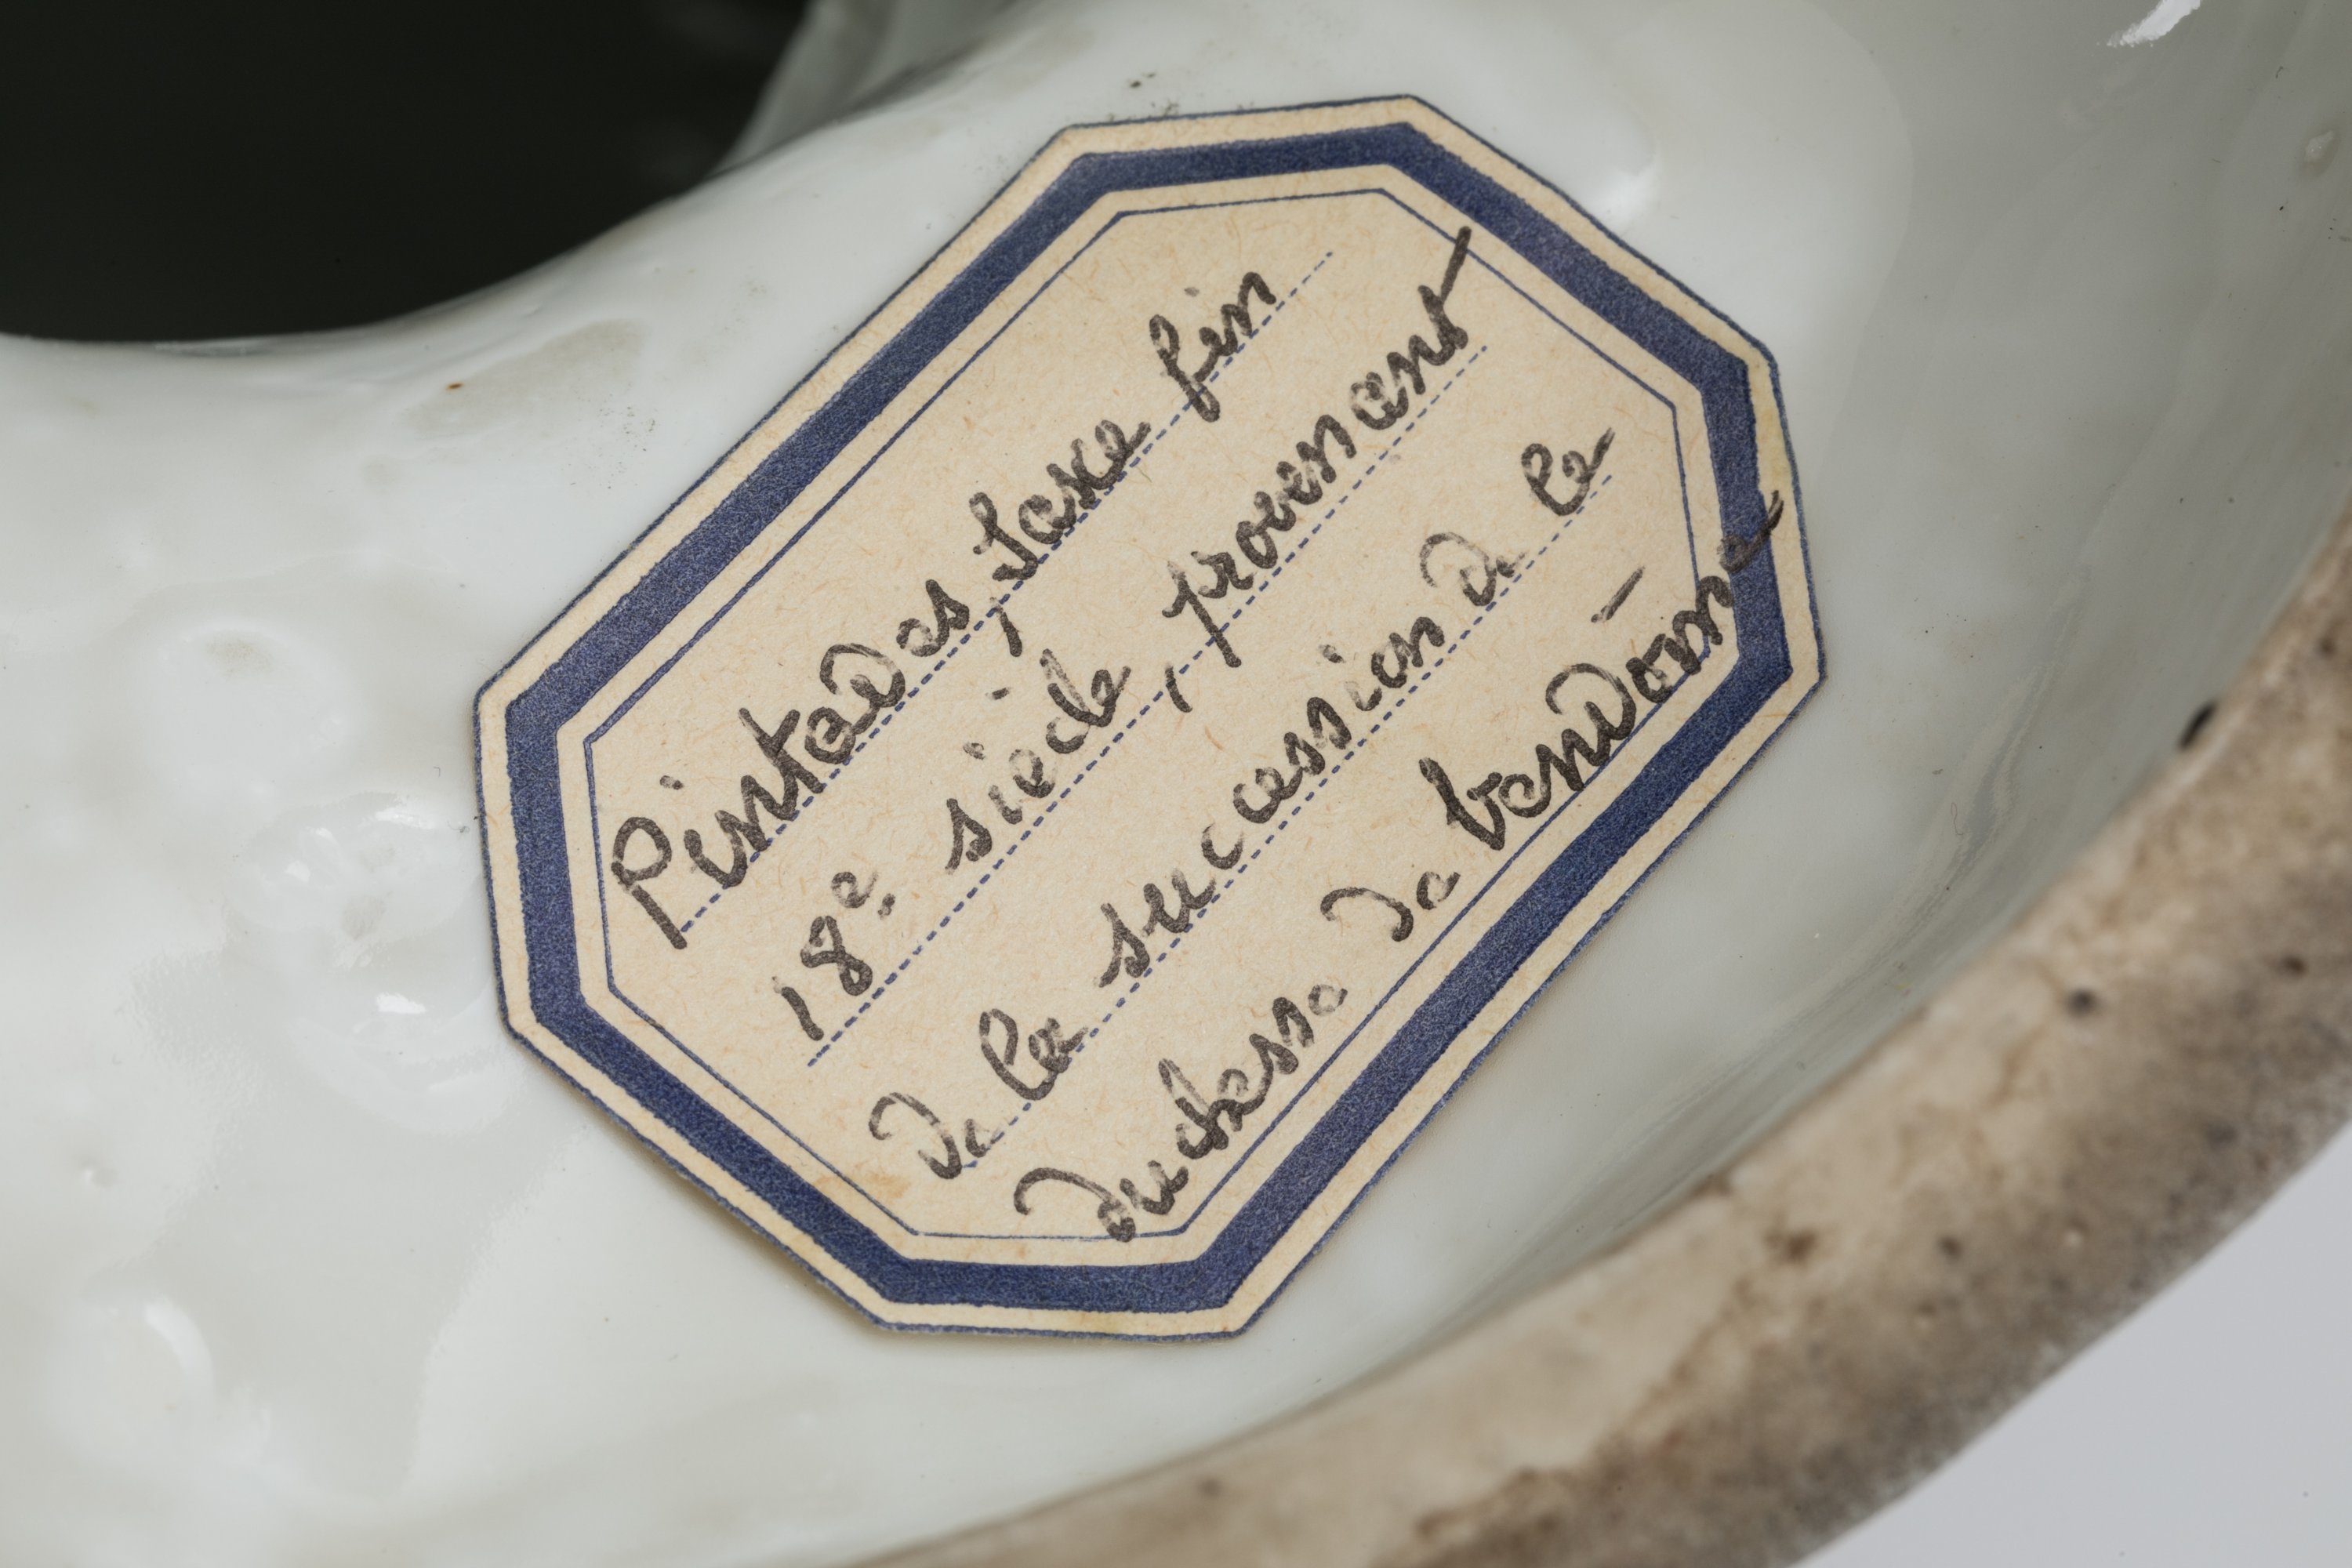 Pintades, Saxe fin
18e siecle, provenant
de la succession de la
duchesse de Vendôme